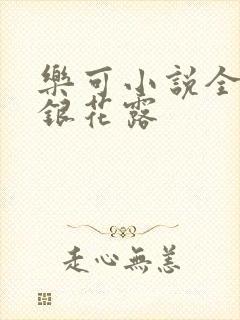 樂可小説全
銀花露
走心無恙